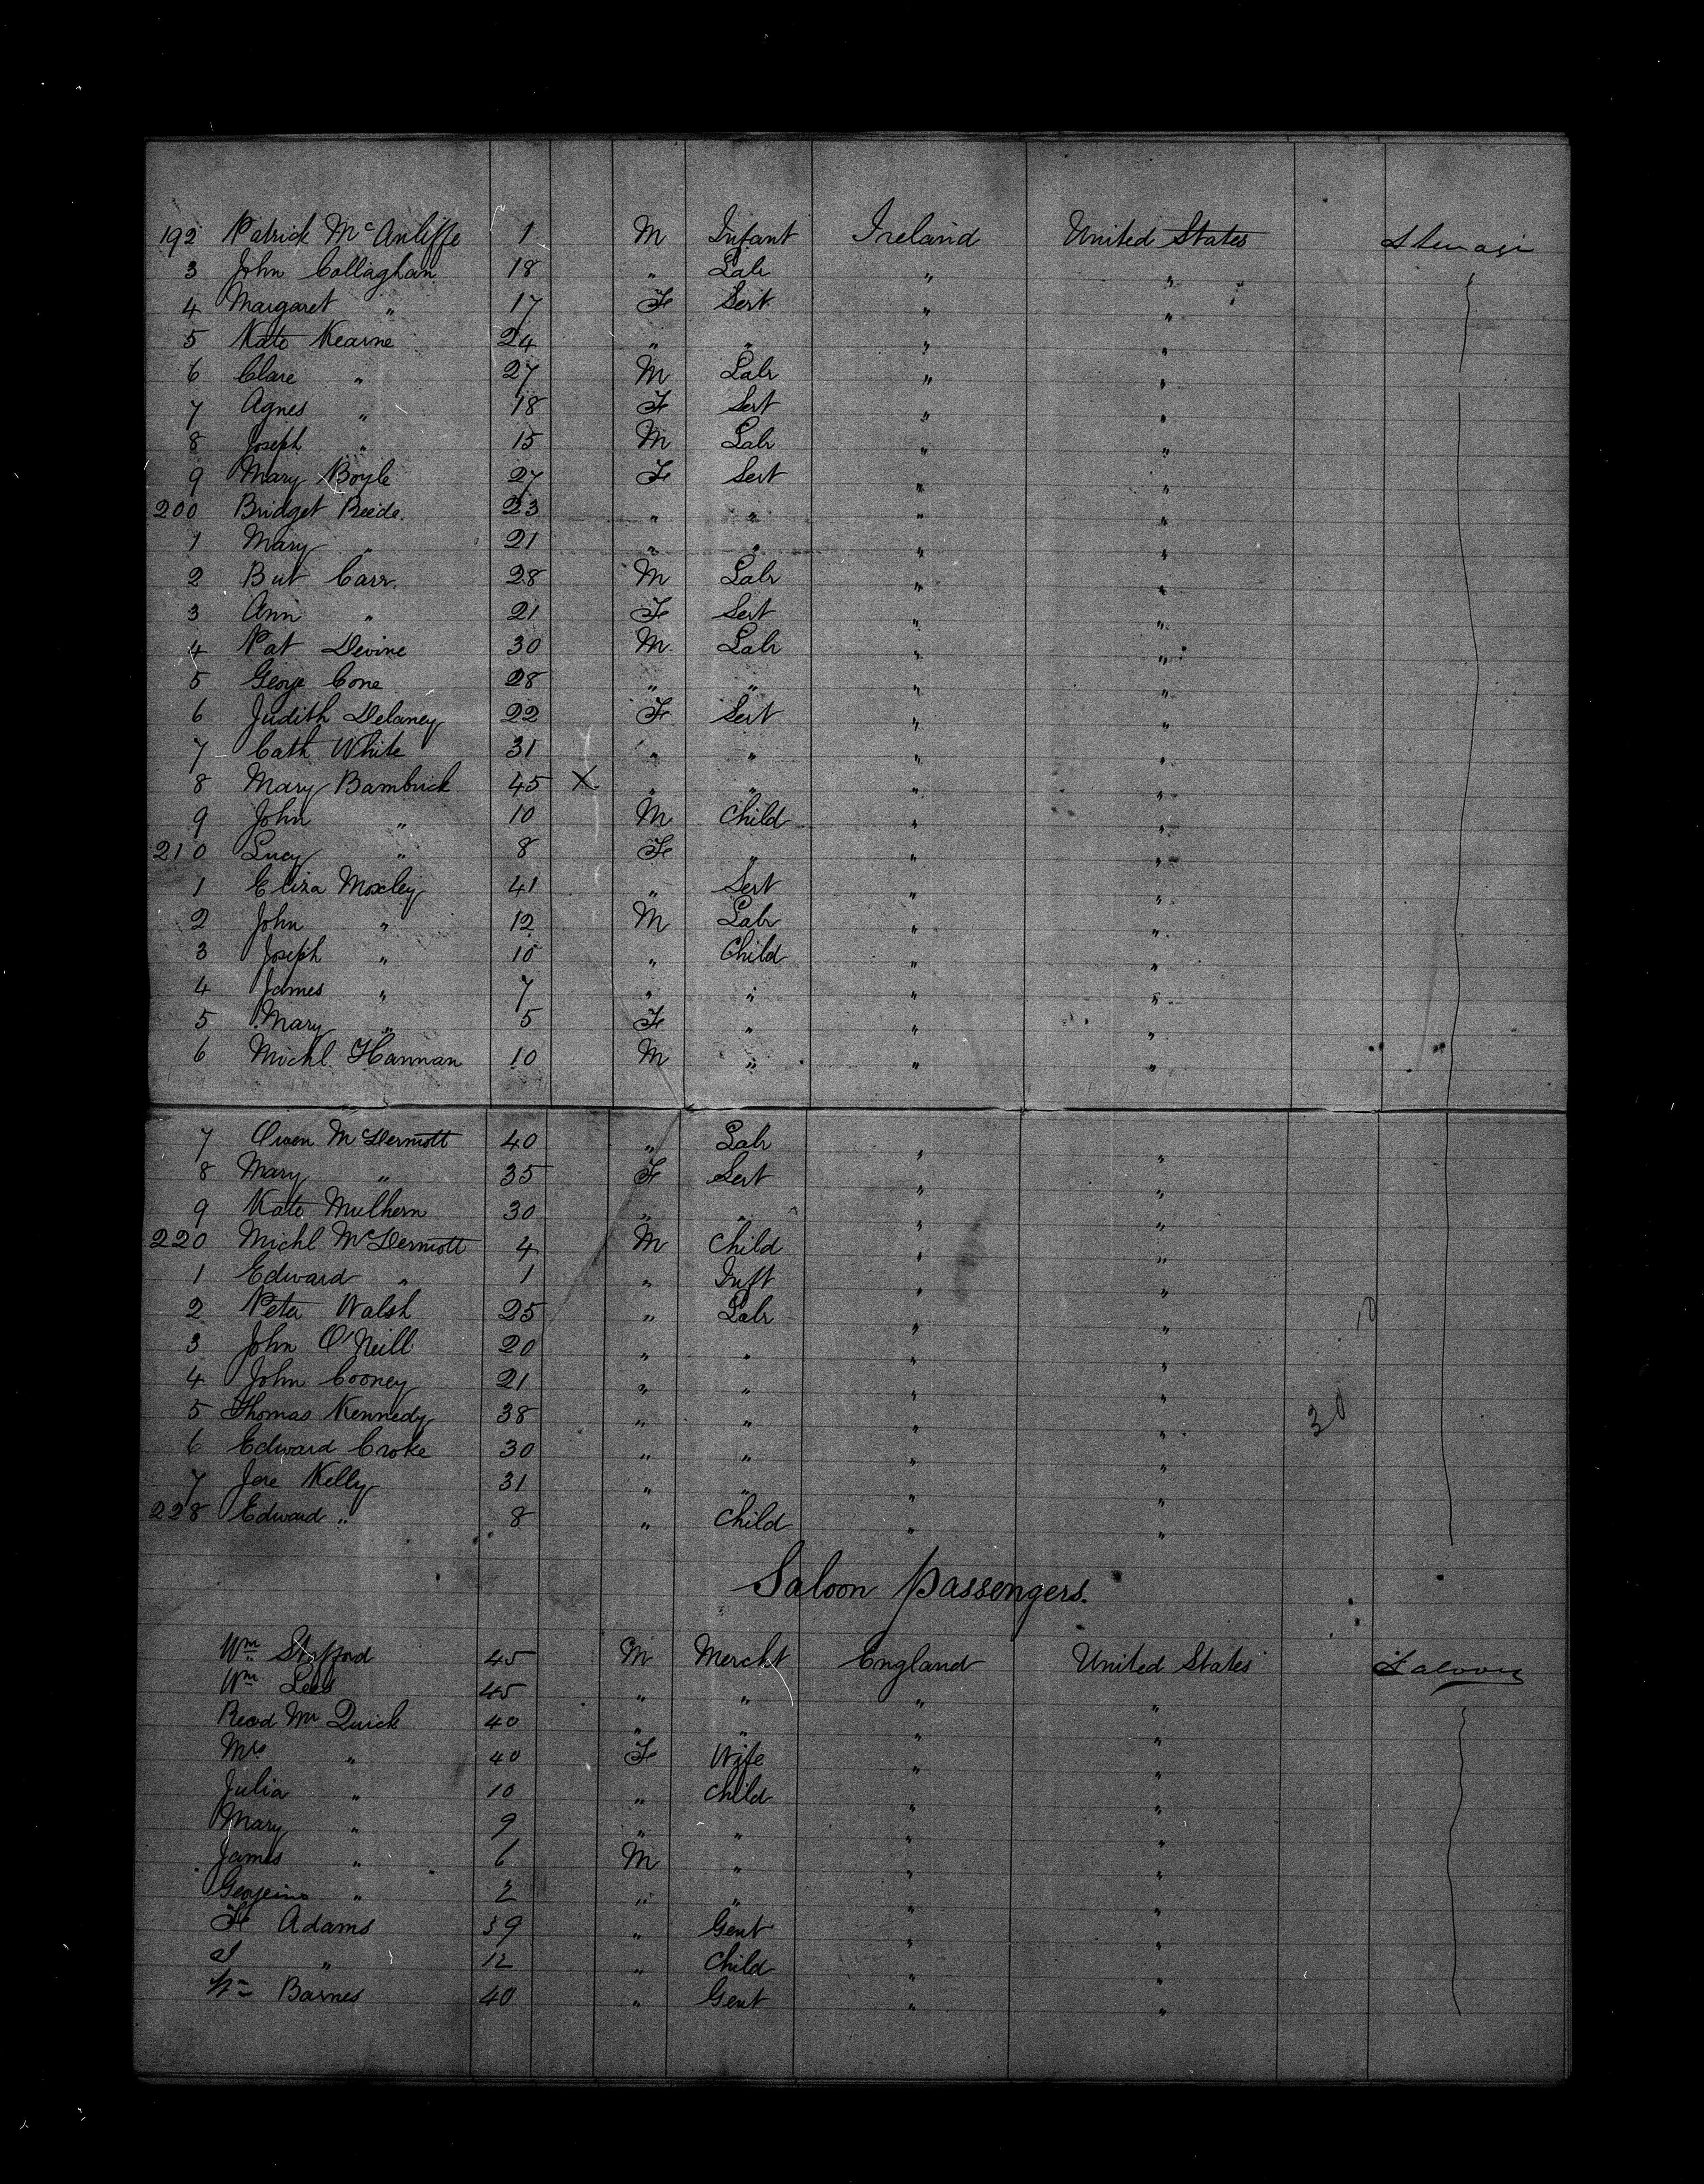 192 Patrick McAuliffe 1 M Infant Ireland United States Steerage
3 John Callaghan 18 " Labr " "
4 Margaret " 17 F Sert " "
5 Kate Kearne 24 " " " "
6 Clare " 27 M Labr " "
7 Agnes " 18 F Sert " "
8 Joseph " 15 M Labr " "
9 Mary Boyle 27 F Sert " "
200 Bridget Reede 23 " " " "
1 Mary " 21 " " " "
2 Bat Carr 28 M Labr " "
3 Ann " 21 F Sert " "
4 Pat Devine 30 M Labr " "
5 George Cone 28 " " " "
6 Judith Delaney 22 F Sert " "
7 Cath White 31 " " " "
8 Mary Bambrick 45 X " " " "
9 John " 10 M Child " "
210 Lucy " 8 F " " "
1 Eliza Moxley 41 " Sert " "
2 John " 12 M Labr " "
3 Joseph " 10 " Child " "
4 James " 7 " " " "
5 Mary " 5 F " " "
6 Michl Hannan 10 M " " "
7 Owen McDermott 40 " Labr " "
8 Mary " 35 F Sert " "
9 Kate Mulhern 30 " " " "
220 Michl McDermott 4 M Child " "
1 Edward " 1 " Inft " "
2 Peter Walsh 25 " Labr " " 10
3 John O'Neill 20 " " " "
4 John Cooney 21 " " " "
5 Thomas Kennedy 38 " " " " 30
6 Edward Croke 30 " " " "
7 Jere Kelly 31 " " " "
228 Edward " 8 " Child " "
Saloon Passengers.
Wm Stafford 45 M Mercht England United States Saloon
Wm Lees 45 " " " "
Revd Mr Quick 40 " " " "
Mrs " 40 F Wife " "
Julia " 10 " Child " "
Mary " 9 " " " "
James " 6 M " " "
Georgeina " 2 " " " "
F Adams 39 " Gent " "
" 12 " Child " "
Wm Barnes 40 " Gent " "